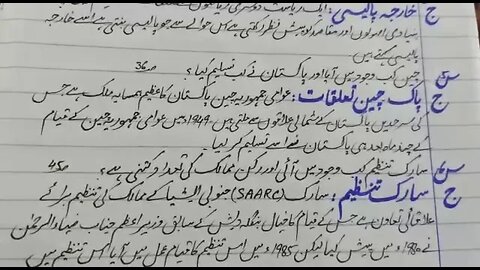 ج خارجہ پالیسی: ایک ریاست دوسری ریاستوں
بنیادی اصولوں اور مقاصد کو پیش نظر رکھتی ہے اس حوالے سے جو پالیسی بنتی ہے اسے خارجہ
پالیسی کہتے ہیں
س چین کب وجود میں آیا اور پاکستان نے کب تسلیم کیا؟ ص36
ج پاک چین تعلقات: عوامی جمہوریہ چین پاکستان کا عظیم ہمسایہ ملک ہے جس
کی سرحدیں پاکستان کے شمالی علاقوں سے ملتی ہیں۔ 1949ء میں عوامی جمہوریہ چین کے قیام
کے چند ماہ بعد ہی پاکستان نے اسے تسلیم کر لیا۔
س سارک تنظیم کب وجود میں آئی اور رکن ممالک کی تعداد کتنی ہے؟ ص45
ج سارک تنظیم: سارک (SAARC) جنوبی ایشیا کے ممالک کی تنظیم برائے
علاقائی تعاون ہے جس کے قیام کا خیال بنگلہ دیش کے سابق وزیر اعظم جناب ضیاء الرحمن
نے 1980ء میں پیش کیا لیکن 1985ء میں اس تنظیم کا قیام عمل میں آیا اس تنظیم میں